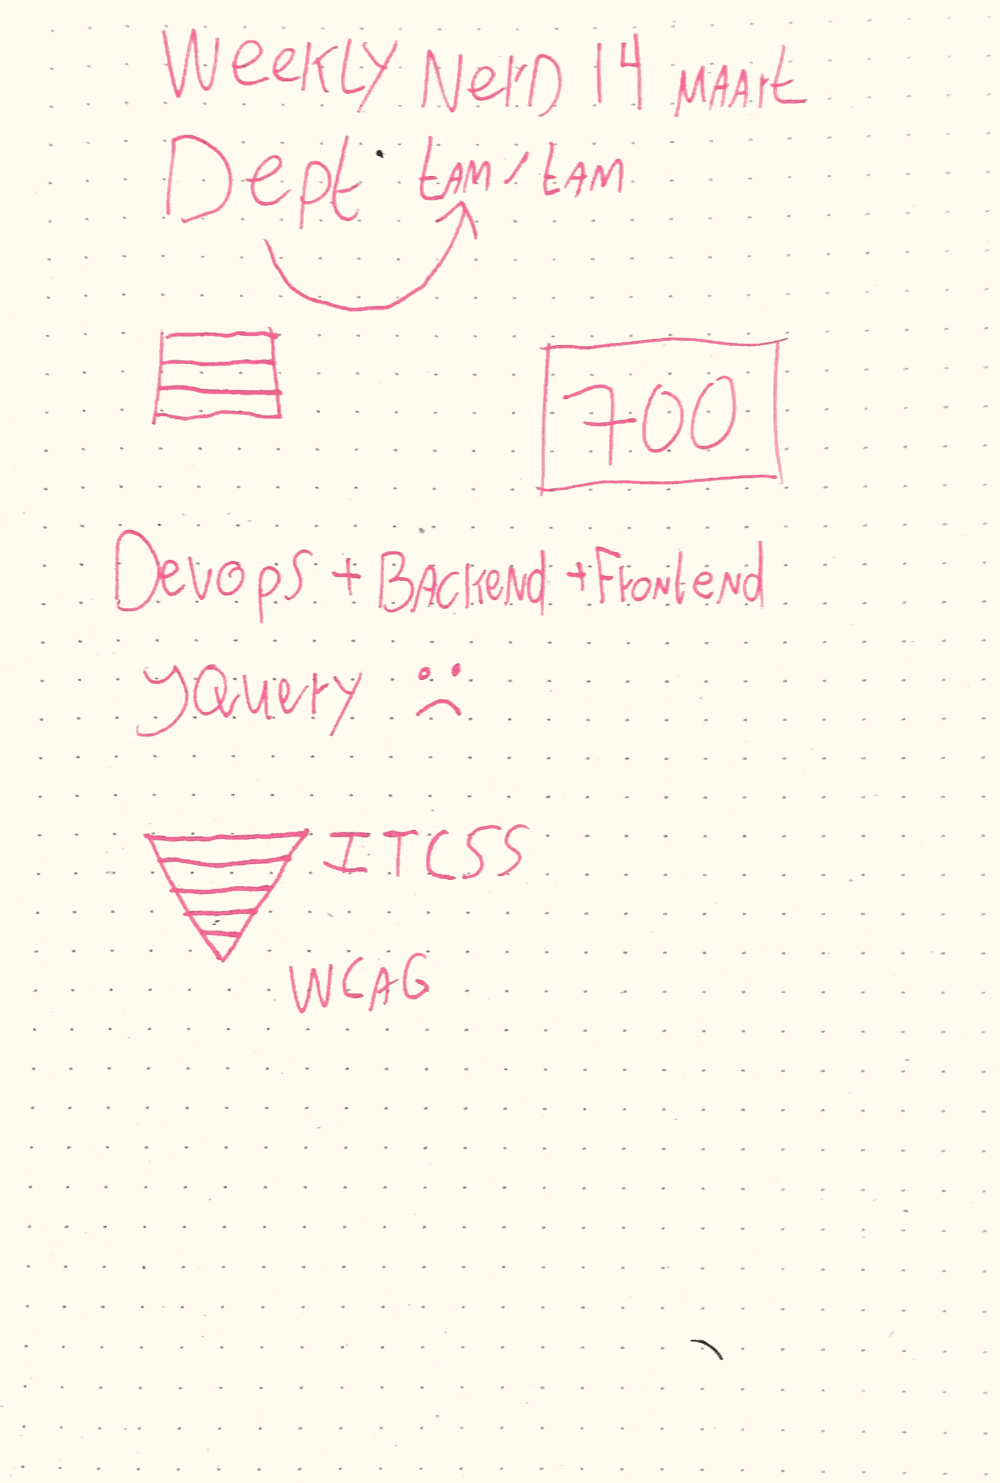 Weekly Nerd 14 maart
Dept tam/tam
700
Devops + Backend + Frontend
jQuery :(
ITCSS
WCAG